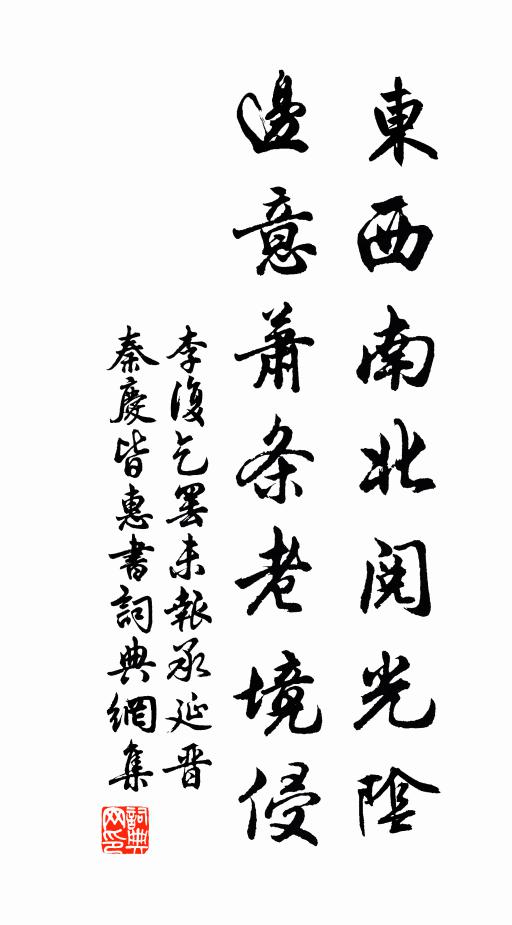 東西南北閱光陰
邊意蕭条老境侵
李復乞罷未報承延晋
秦慶皆惠書詞典網集
詞典網印